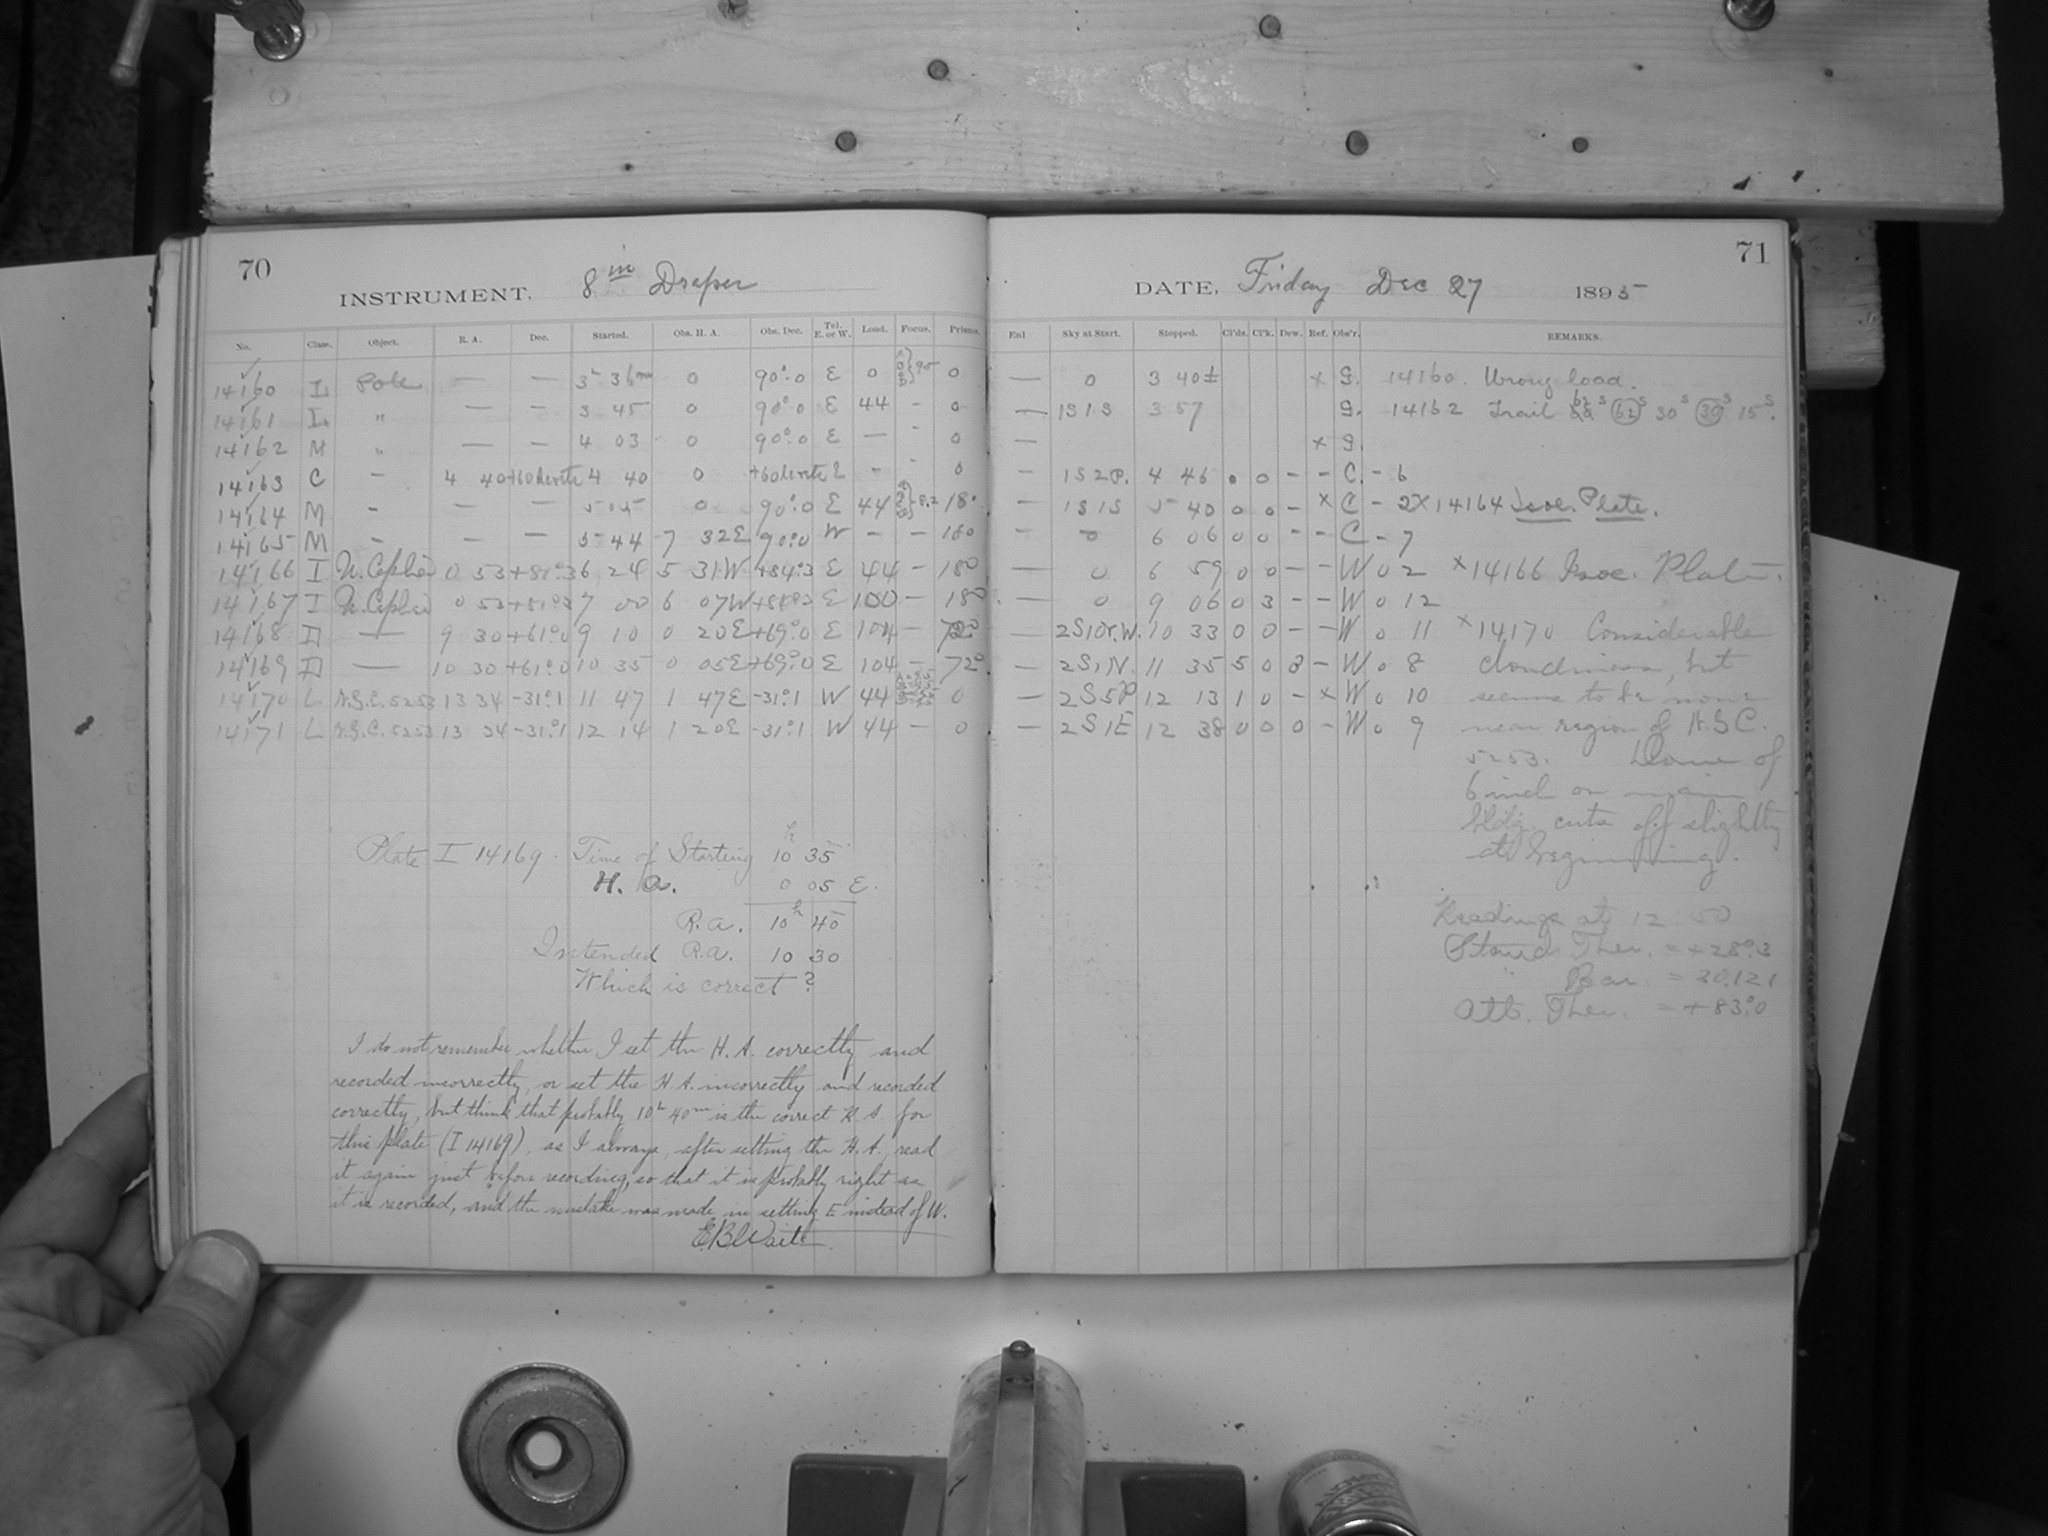 70
INSTRUMENT. 8 in Draper
No. Class. Object. R. A. Dec. Started. Obs. H. A. Obs. Dec. Tel. E. or W. Load. Focus. Prisms.
14160 I Pole — — 3h 36m 0 90°.0 E 0 95 0
14161 I " — — 3 45 0 90°.0 E 44 - 0
14162 M " — — 4 03 0 90°.0 E — - 0
14163 C - 4 40 +60 4 40 0 +60 E - - 0
14164 M - — — 5 05 0 90°.0 E 44 8.2 18°
14165 M - — — 5 44 7 32E 90°.0 W - - 180
14166 I U. Cephei 0 53 +81°.3 6 24 5 31W +84°.3 E 44 - 180
14167 I U. Cephei 0 53 +81°.3 7 00 6 07W E 100 - 180
14168 I — 9 30 +61°.0 9 10 0 20E +69°.0 E 104 -
14169 I — 10 30 +61°.0 10 35 0 05E +69°.0 E 104 - 72°
14170 L N.G.C. 5253 13 34 -31°.1 11 47 1 47E -31°.1 W 44 0
14171 L N.G.C. 5253 13 34 -31°.1 12 14 1 20E -31°.1 W 44 — 0
Plate I 14169. Time of Starting 10h 35
H. A. 0 05 E.
R.A. 10h 40
Intended R.A. 10 30
Which is correct?
I do not remember whether I set the H. A. correctly and
recorded incorrectly, or set the H. A. incorrectly and recorded
correctly, but think that probably 10h 40m is the correct R. A. for
this plate (I 14169), as I always, after setting the H. A., read
it again just before recording, so that it is probably right as
it is recorded, and the mistake was made in setting E instead of W.
E.B. Waite
71
DATE, Friday Dec 27 1895
Enl Sky at Start. Stopped. Cl'ds. Cl'k. Dew. Ref. Obs'r. REMARKS.
— 0 3 40± x G. 14160. Wrong load.
— 1S1S 3 57 G. 14162 Trail 62s 30s 15s.
— x G.
- 1S2P. 4 46 0 0 - - C. - 6
- 1S1S 5 40 0 0 - x C - 2 x 14164 Isoc. Plate.
- 0 6 06 0 0 - - C - 7
— 0 6 59 0 0 - - W 0 2 x 14166 Isoc. Plate.
— 0 9 06 0 3 - - W 0 12
— 10 33 0 0 - - W 0 11 x 14170 Considerable
— 2S1N. 11 35 5 0 - W 0 8 cloudiness, but
— 2S5P 12 13 1 0 - x W 0 10 seems to be none
— 2S1E 12 38 0 0 0 - W 0 9 near region of N.G.C.
5253. Dome of
6 inch on main
bldg. cuts off slightly
at beginning.
Readings at 12:50
Stand Ther. = +28°.3
" Bar. = 30.121
Att. Ther. = +83°.0